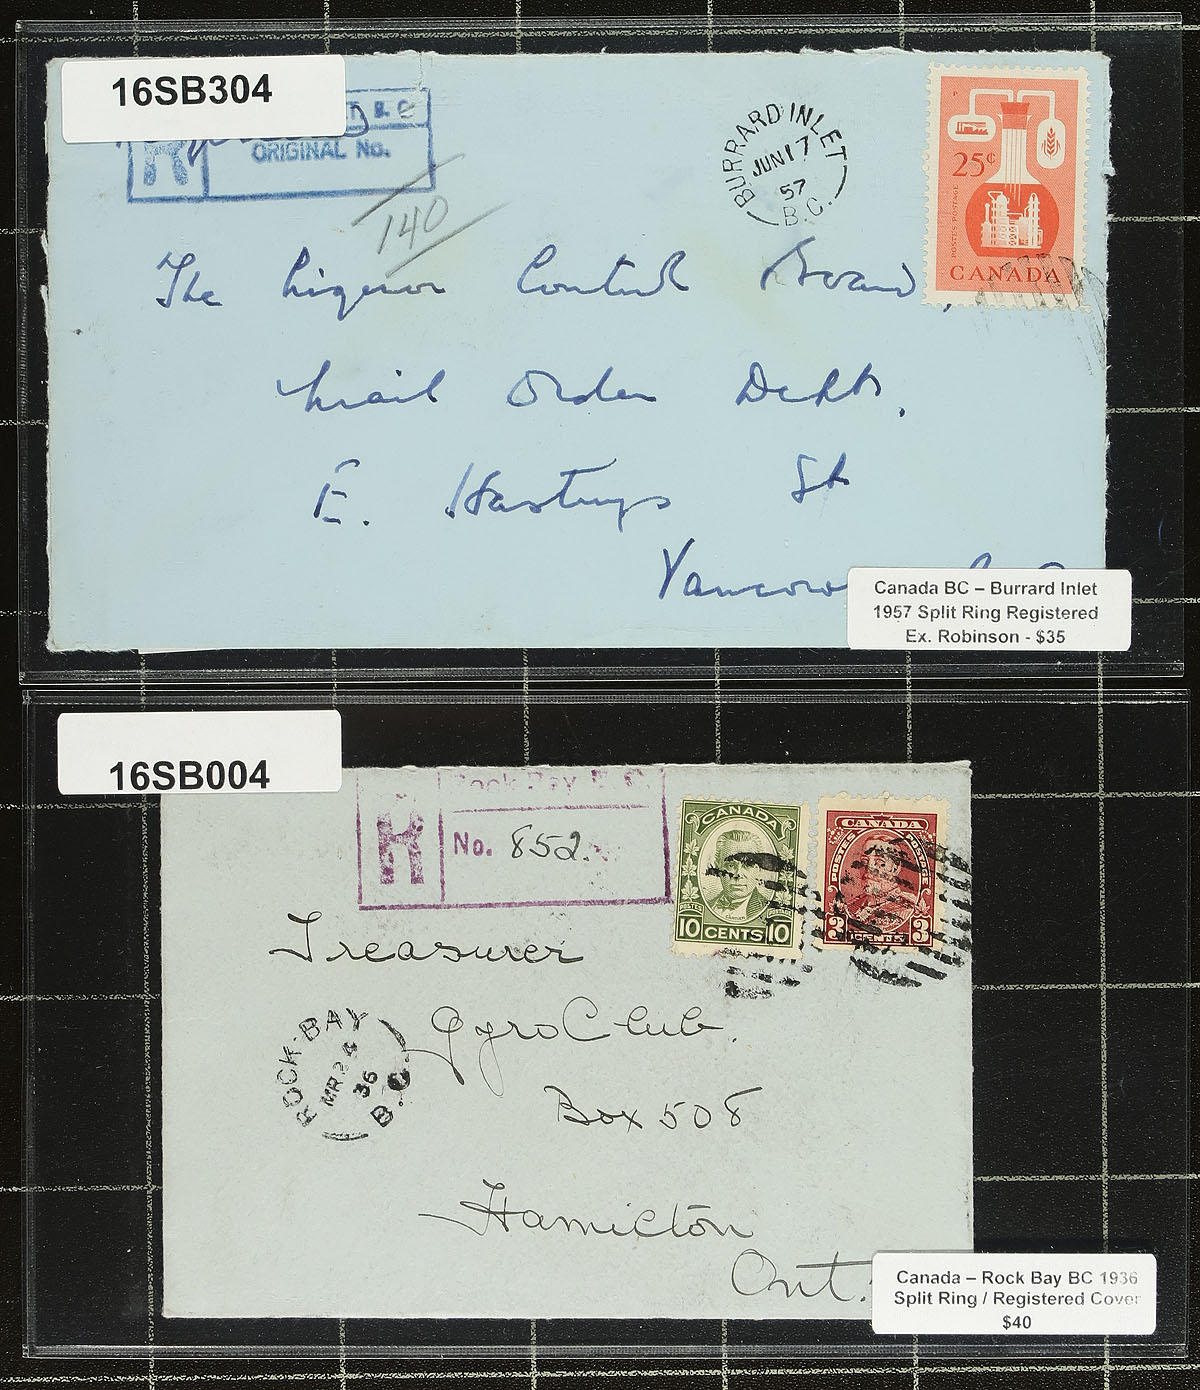 16SB304
B.C.
R
ORIGINAL No.
140
BURRARD INLET
JUN 17
57
B.C.
P
25¢
POSTES POSTAGE
CANADA
The Liquor Control Board,
Mail Order Dept.,
E. Hastings St
Canada BC – Burrard Inlet
1957 Split Ring Registered
Ex. Robinson - $35
16SB004
Rock Bay B.C.
R
No. 852.
CANADA
10 CENTS 10
CANADA
POSTES POSTAGE
3 CENTS 3
Treasurer
Gyro Club.
Box 508
Hamilton
Ont.
ROCK-BAY
MR 24
36
B.C.
Canada – Rock Bay BC 1936
Split Ring / Registered Cover
$40